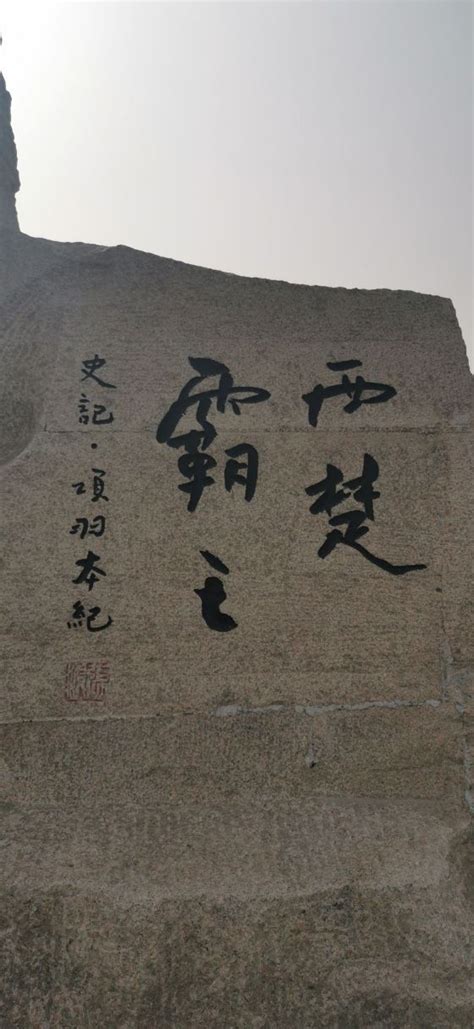 西楚
霸王
史記·項羽本紀